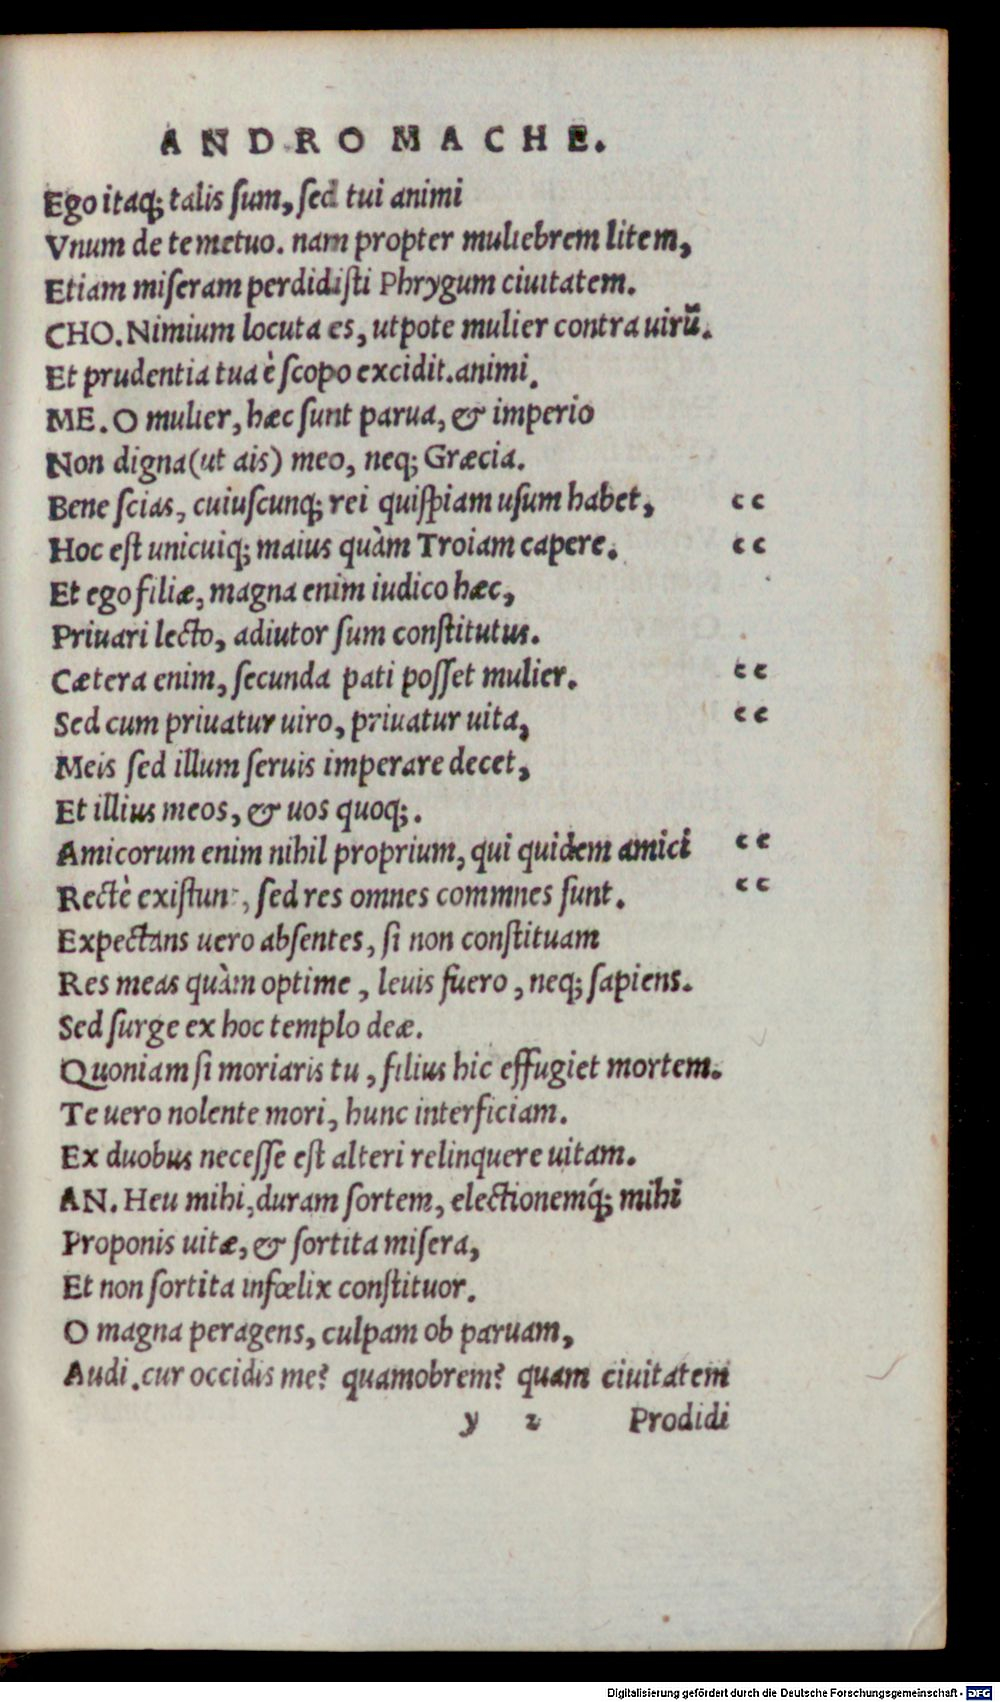 ANDROMACHE.
Ego itaq; talis ſum, ſed tui animi
Vnum de te metuo. nam propter muliebrem litem,
Etiam miſeram perdidiſti Phrygum ciuitatem.
CHO. Nimium locuta es, utpote mulier contra uirũ.
Et prudentia tua è ſcopo excidit. animi.
ME. O mulier, hæc ſunt parua, & imperio
Non digna (ut ais) meo, neq; Græcia.
Bene ſcias, cuiuſcunq; rei quiſpiam uſum habet, “
Hoc eſt unicuiq; maius quàm Troiam capere. “
Et ego filiæ, magna enim iudico hæc,
Priuari lecto, adiutor ſum conſtitutus.
Cætera enim, ſecunda pati poſſet mulier. “
Sed cum priuatur uiro, priuatur uita, “
Meis ſed illum ſeruis imperare decet,
Et illius meos, & uos quoq;.
Amicorum enim nihil proprium, qui quidem amici “
Rectè exiſtunt, ſed res omnes commnes ſunt. “
Expectans uero abſentes, ſi non conſtituam
Res meas quàm optime, leuis fuero, neq; ſapiens.
Sed ſurge ex hoc templo deæ.
Quoniam ſi moriaris tu, filius hic effugiet mortem.
Te uero nolente mori, hunc interficiam.
Ex duobus neceſſe eſt alteri relinquere uitam.
AN. Heu mihi, duram ſortem, electionemq́; mihi
Proponis uitæ, & ſortita miſera,
Et non ſortita infœlix conſtituor.
O magna peragens, culpam ob paruam,
Audi. cur occidis me? quamobrem? quam ciuitatem
y 2 Prodidi
Digitalisierung gefördert durch die Deutsche Forschungsgemeinschaft - DFG